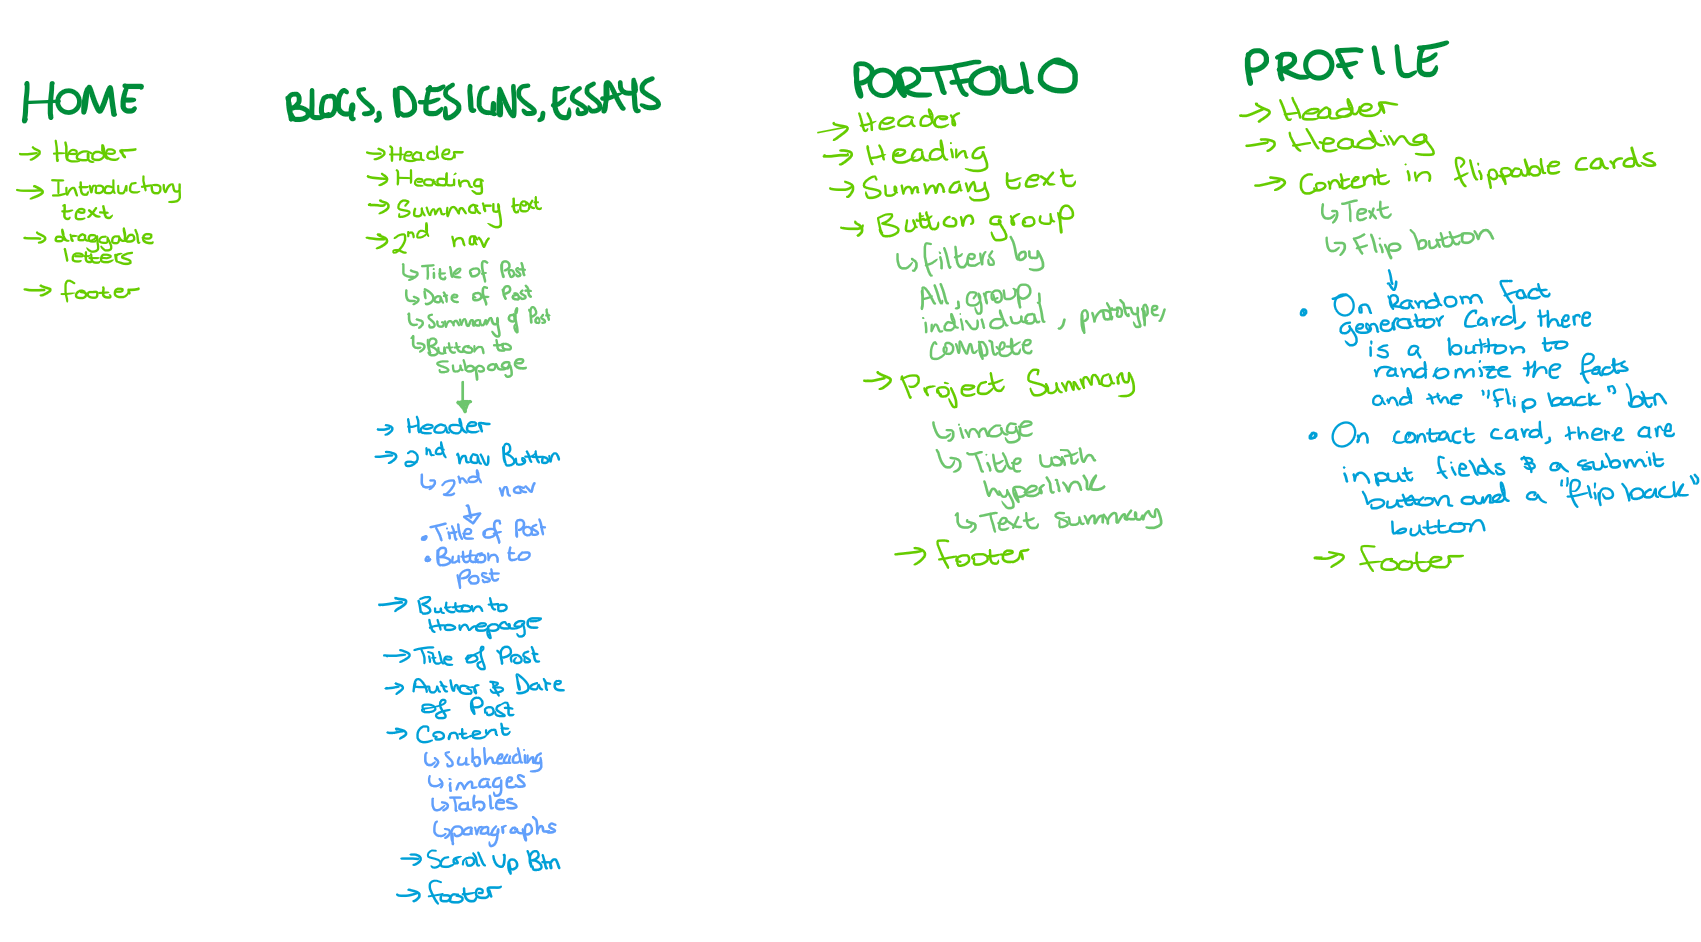 HOME
→ Header
→ Introductory
text
→ draggable
letters
→ footer
BLOGS, DESIGNS, ESSAYS
→ Header
→ Heading
→ Summary text
→ 2nd nav
↳ Title of Post
↳ Date of Post
↳ Summary of Post
↳ Button to
Subpage
→ Header
→ 2nd nav Button
↳ 2nd nav
• Title of Post
• Button to
Post
→ Button to
Homepage
→ Title of Post
→ Author & Date
of Post
→ Content
↳ Subheading
↳ images
↳ Tables
↳ paragraphs
→ Scroll Up Btn
→ footer
PORTFOLIO
→ Header
→ Heading
→ Summary text
→ Button group
↳ filters by
All, group,
individual, prototype,
complete
→ Project Summary
↳ image
↳ Title with
hyperlink
↳ Text summary
→ footer
PROFILE
→ Header
→ Heading
→ Content in flippable cards
↳ Text
↳ Flip button
• On Random Fact
generator Card, there
is a button to
randomize the facts
and the "flip back" btn
• On contact card, there are
input fields & a submit
button and a "flip back"
button
→ footer